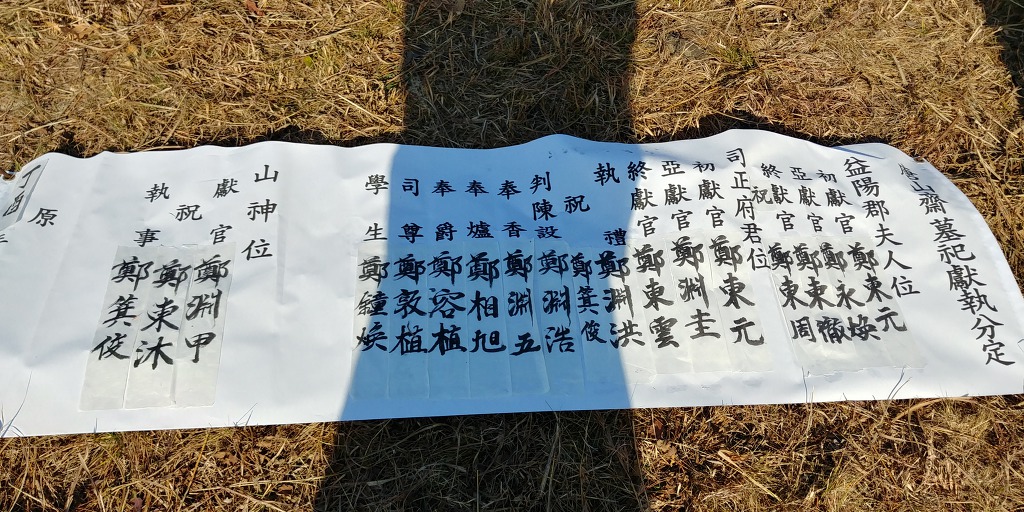 唐山齋墓祀獻執分定
益陽郡夫人位
初獻官 鄭東元
亞獻官 鄭永煥
終獻官 鄭東徹
祝 鄭東周
司正府君位
初獻官 鄭東元
亞獻官 鄭淵圭
終獻官 鄭東雲
執禮 鄭淵洪
祝 鄭箕俊
判陳設 鄭淵浩
奉香 鄭淵五
奉爐 鄭相旭
奉爵 鄭容植
司尊 鄭敦植
學生 鄭鍾煥
山神位
獻官 鄭淵甲
祝 鄭東沐
執事 鄭箕俊
原